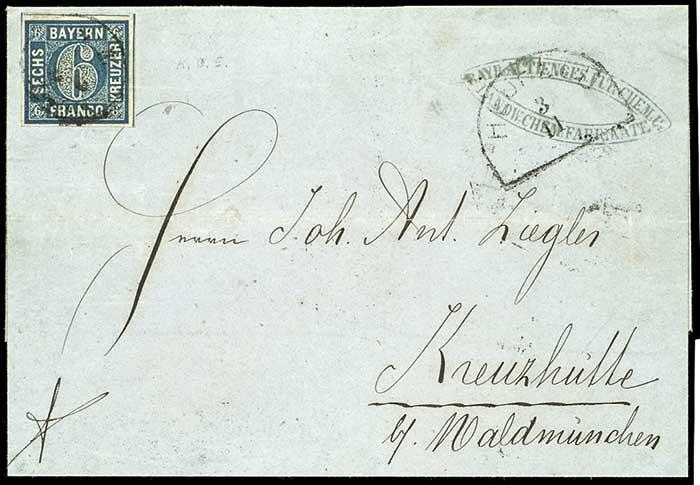 BAYERN
SECHS
6
KREUZER
FRANCO
K. B. E.
BAYR. ACTIENGES. FÜR CHEM. U.
LANDW. CHEM. FABRIKATE
Herrn Joh. Ant. Ziegler
Kreuzhütte
b/. Waldmünchen